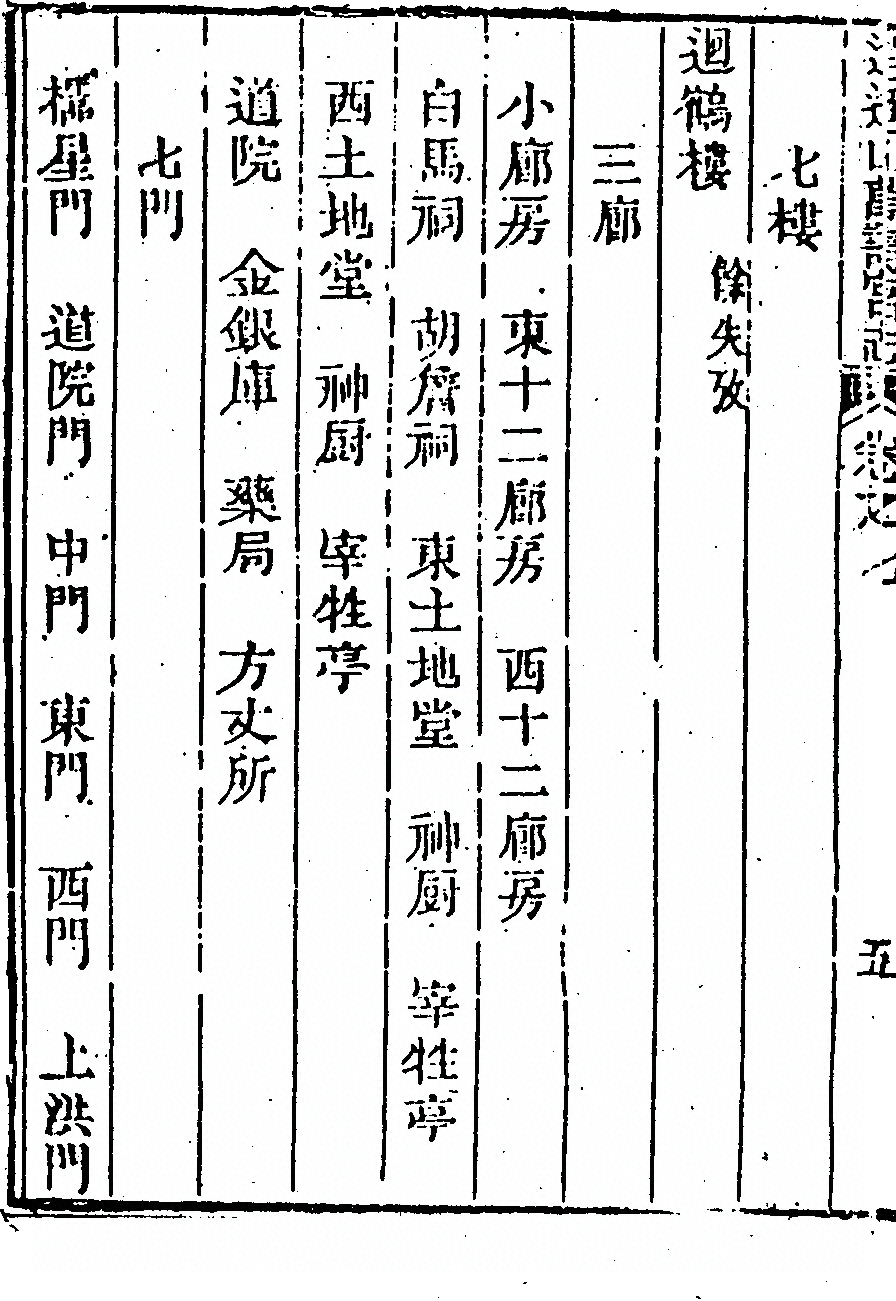 五
七樓
迴鶴樓 餘失攷
三廊
小廊房 東十二廊房 西十二廊房
白馬祠 胡詹祠 東土地堂 神厨 宰牲亭
西土地堂 神厨 宰牲亭
道院 金銀庫 藥局 方丈所
七門
櫺星門 道院門 中門 東門 西門 上洪門